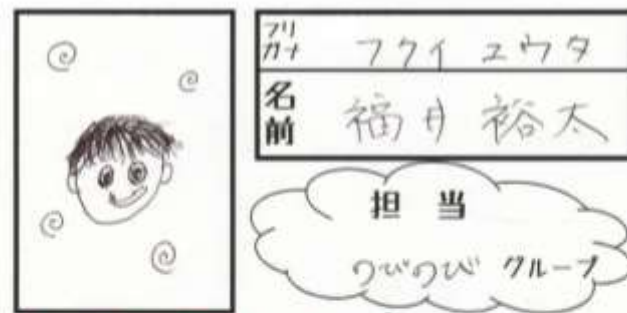 フリガナ フクイ ユウタ
名前 福井 裕太
担当
のびのび グループ